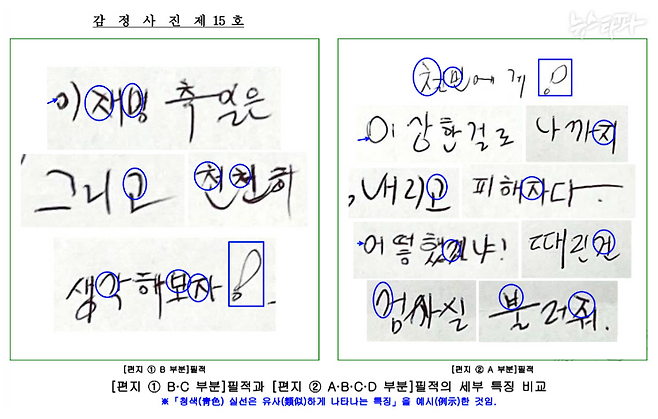 감 정 사 진 제 15 호
뉴스타파
이재명 측일은
그리고 천천히
생각해보자
천민에게
이상한걸로 나까지
내리고 피해자다
어떻했길냐! 때린건
엄사실 불러줘.
[편지 ① B 부분]필적
[편지 ② A 부분]필적
[편지 ① B·C 부분]필적과 [편지 ② A·B·C·D 부분]필적의 세부 특징 비교
※「청색(靑色) 실선은 유사(類似)하게 나타나는 특징」을 예시(例示)한 것임.